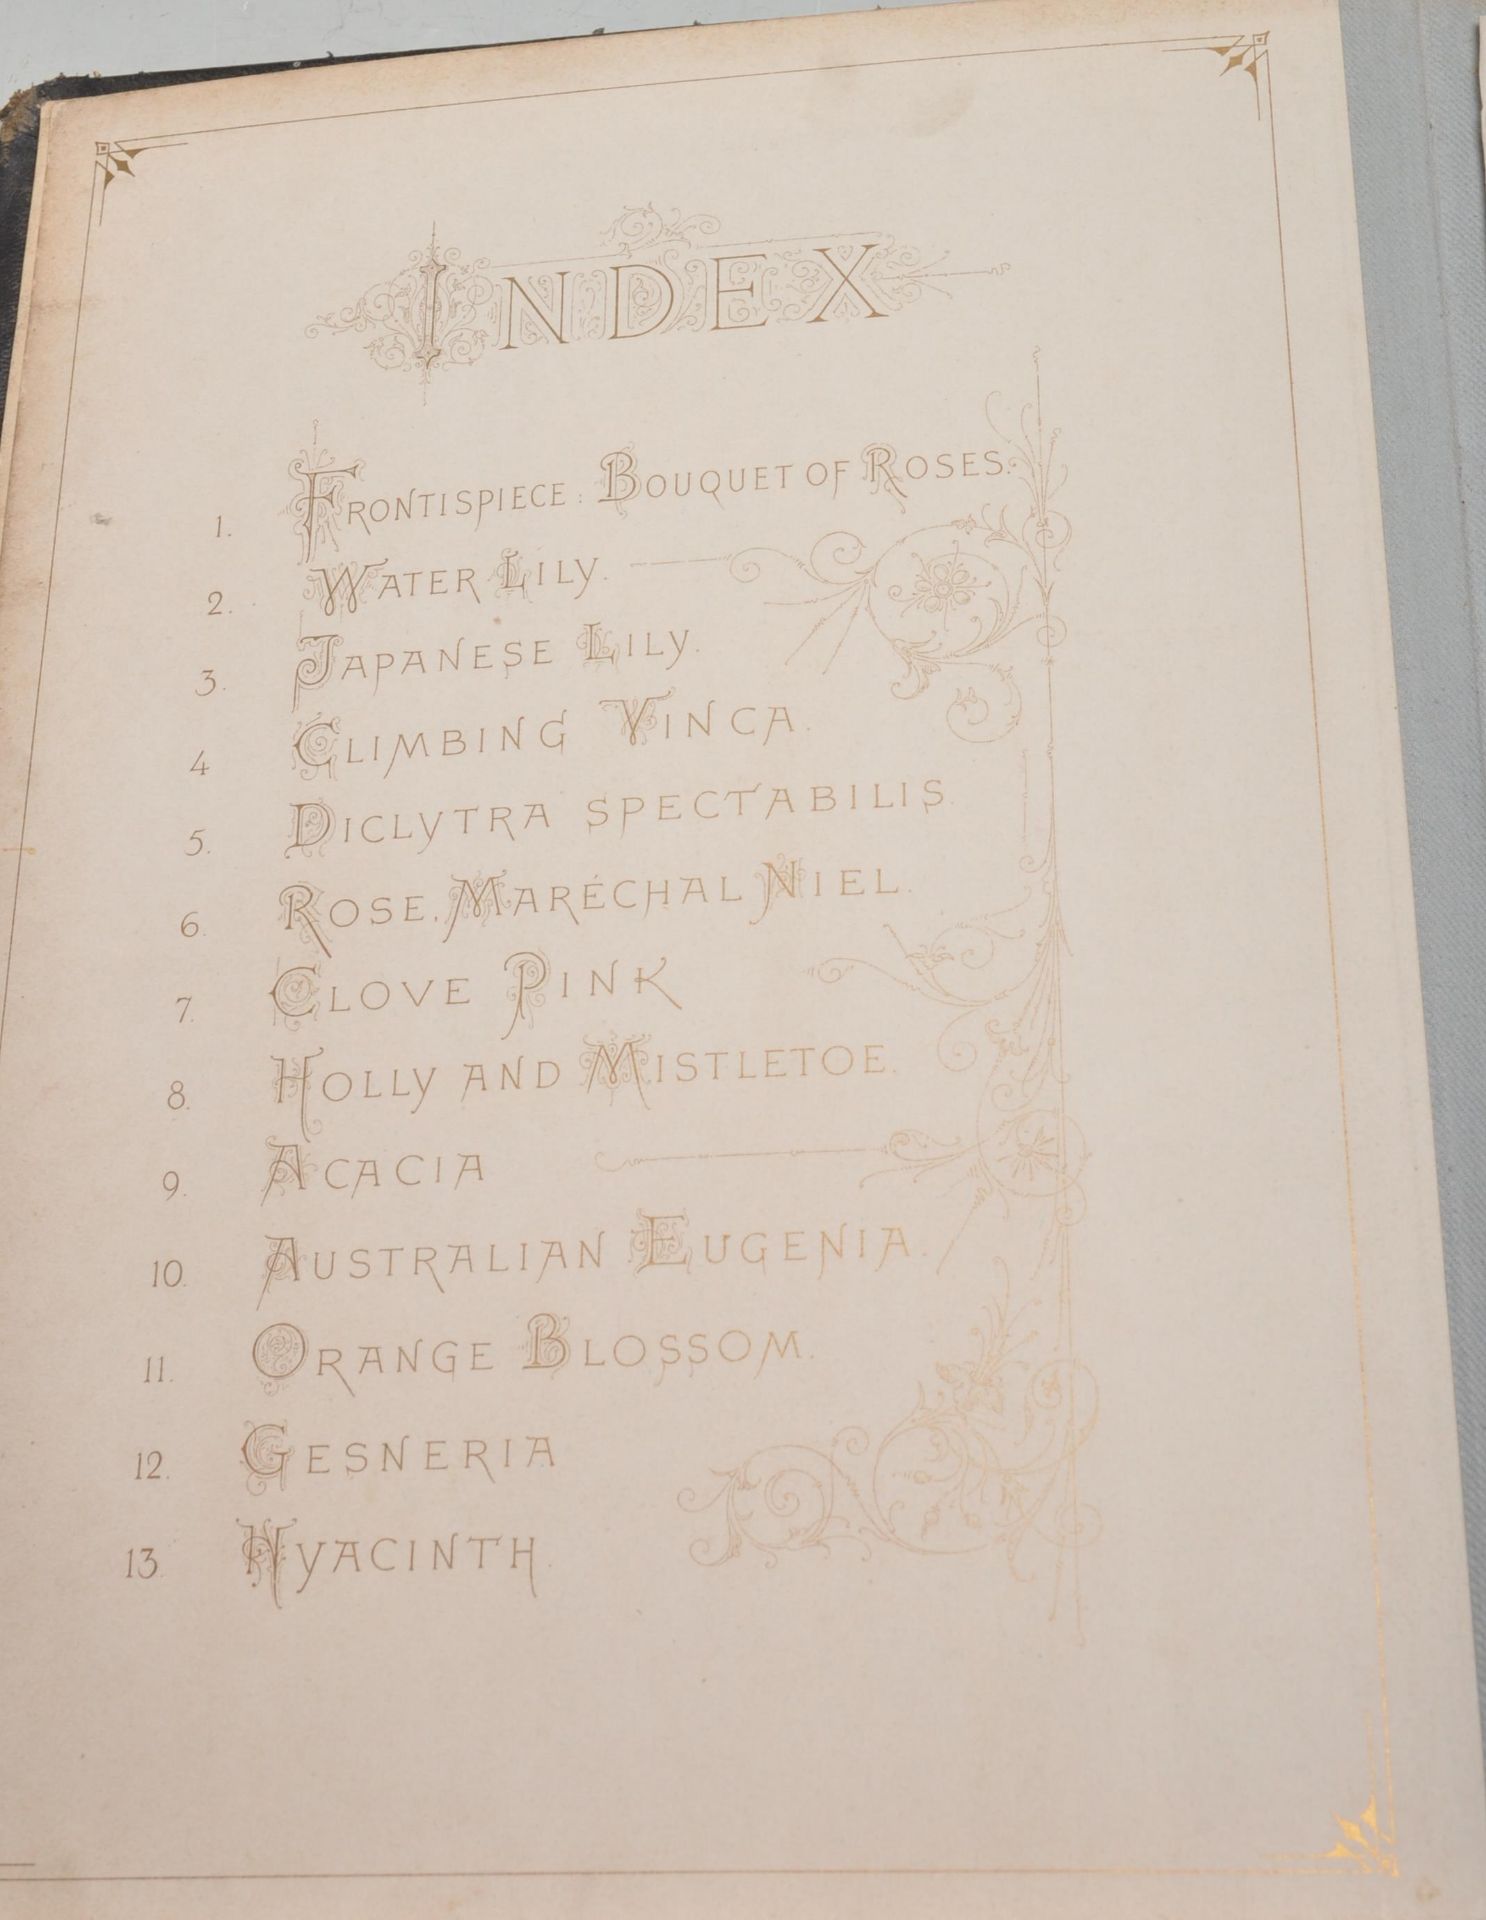 INDEX
1. FRONTISPIECE: BOUQUET OF ROSES.
2. WATER LILY.
3. JAPANESE LILY.
4 CLIMBING VINCA.
5. DICLYTRA SPECTABILIS.
6. ROSE, MARÉCHAL NIEL.
7. CLOVE PINK
8. HOLLY AND MISTLETOE.
9. ACACIA
10. AUSTRALIAN EUGENIA.
11. ORANGE BLOSSOM.
12. GESNERIA
13. HYACINTH.